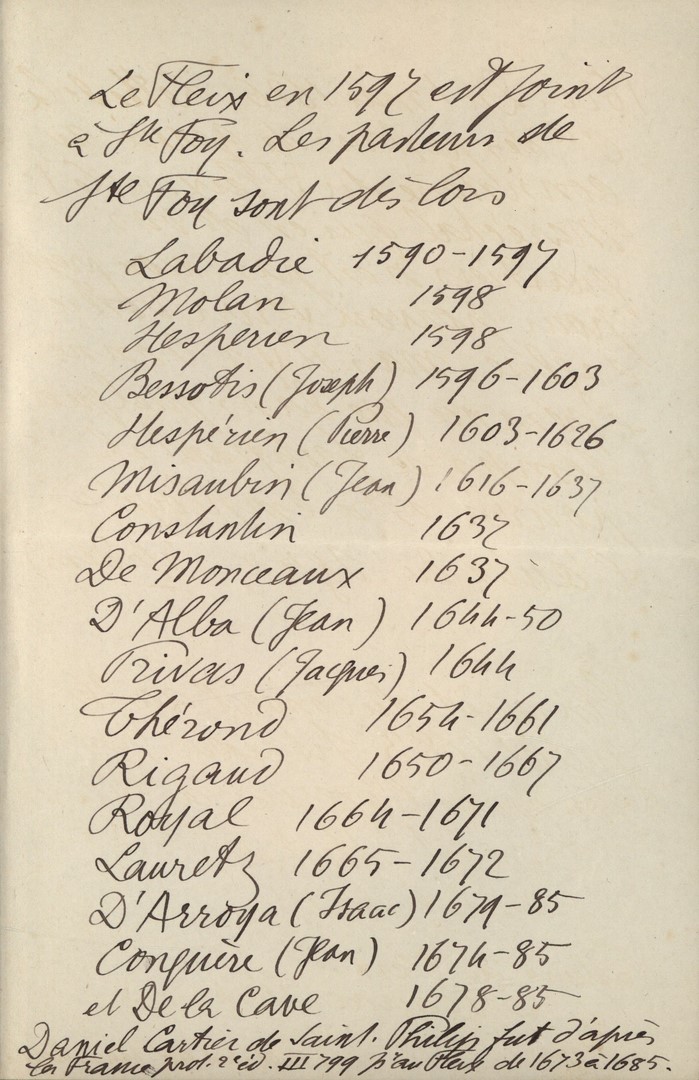 Le Fleix en 1597 est joint
à Ste Foy. Les pasteurs de
Ste Foy sont dès lors
Labadie 1590-1597
Molan 1598
Hesperien 1598
Bessotis (Joseph) 1596-1603
Hespérien (Pierre) 1603-1626
Misaubin (Jean) 1616-1637
Constantin 1637
De Monceaux 1637
D'Alba (Jean) 1644-50
Privas (Jacques) 1644
Thérond 1654-1661
Rigaud 1650-1667
Royal 1664-1671
Lauretz 1665-1672
D'Arroya (Isaac) 1679-85
Conquère (Jean) 1674-85
et De la Cave 1678-85
Daniel Cartier de Saint. Philip fut d'après
la France prot. 2e éd. III 799 pr au Fleix de 1673 à 1685.